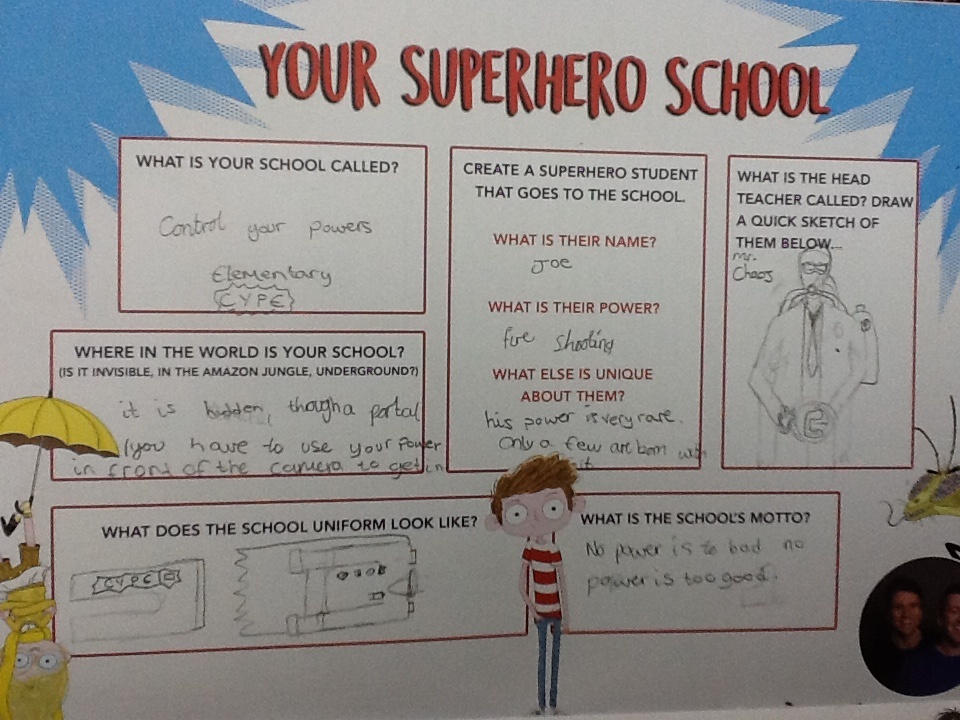 YOUR SUPERHERO SCHOOL
WHAT IS YOUR SCHOOL CALLED?
Control your powers
Elementary
CYPE
CREATE A SUPERHERO STUDENT
THAT GOES TO THE SCHOOL.
WHAT IS THEIR NAME?
Joe
WHAT IS THEIR POWER?
fire shooting
WHAT ELSE IS UNIQUE
ABOUT THEM?
his power is very rare.
Only a few are born with
it
WHAT IS THE HEAD
TEACHER CALLED? DRAW
A QUICK SKETCH OF
THEM BELOW...
mr.
Chaos
WHERE IN THE WORLD IS YOUR SCHOOL?
(IS IT INVISIBLE, IN THE AMAZON JUNGLE, UNDERGROUND?)
it is hidden, though a portal
(you have to use your power
in front of the camera to get in
WHAT DOES THE SCHOOL UNIFORM LOOK LIKE?
CYPE
WHAT IS THE SCHOOL'S MOTTO?
No power is to bad no
power is too good.